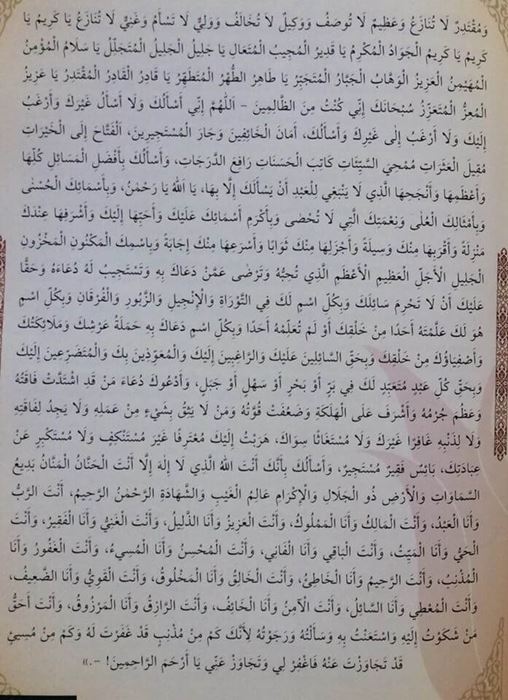 وَمُقْتَدِرٌ لَا تُنَازَعُ وَعَظِيمٌ لَا تُوصَفُ وَوَكِيلٌ لَا تُخَالَفُ وَوَلِيٌّ لَا تَسْأَمُ وَغَنِيٌّ لَا تُنَازَعُ يَا كَرِيمُ يَا
كَرِيمُ يَا كَرِيمُ الْجَوَادُ الْمُكْرِمُ يَا قَدِيرُ الْمُجِيبُ الْمُتَعَالِ يَا جَلِيلُ الْجَلِيلُ الْمُتَجَلِّلُ يَا سَلَامُ الْمُؤْمِنُ
الْمُهَيْمِنُ الْعَزِيزُ الْوَهَّابُ الْجَبَّارُ الْمُتَجَبِّرُ يَا طَاهِرُ الطُّهْرُ الْمُتَطَهِّرُ يَا قَادِرُ الْقَادِرُ الْمُقْتَدِرُ يَا عَزِيزُ
الْمُعِزُّ الْمُتَعَزِّزُ سُبْحَانَكَ إِنِّي كُنْتُ مِنَ الظَّالِمِينَ – اَللَّهُمَّ إِنِّي أَسْأَلُكَ وَلَا أَسْأَلُ غَيْرَكَ وَأَرْغَبُ
إِلَيْكَ وَلَا أَرْغَبُ إِلَى غَيْرِكَ وَأَسْأَلُكَ، أَمَانَ الْخَائِفِينَ وَجَارَ الْمُسْتَجِيرِينَ، اَلْفَتَّاحَ إِلَى الْخَيْرَاتِ
مُقِيلَ الْعَثَرَاتِ مُمْحِيَ السَّيِّئَاتِ كَاتِبَ الْحَسَنَاتِ رَافِعَ الدَّرَجَاتِ، وَأَسْأَلُكَ بِأَفْضَلِ الْمَسَائِلِ كُلِّهَا
وَأَعْظَمِهَا وَأَنْجَحِهَا الَّذِي لَا يَنْبَغِي لِلْعَبْدِ أَنْ يَسْأَلَكَ إِلَّا بِهَا، يَا اَللهُ يَا رَحْمٰنُ، وَبِأَسْمَائِكَ الْحُسْنٰى
وَبِأَمْثَالِكَ الْعُلٰى وَنِعْمَتِكَ الَّتِي لَا تُحْصٰى وَبِأَكْرَمِ أَسْمَائِكَ عَلَيْكَ وَأَحَبِّهَا إِلَيْكَ وَأَشْرَفِهَا عِنْدَكَ
مَنْزِلَةً وَأَقْرَبِهَا مِنْكَ وَسِيلَةً وَأَجْزَلِهَا مِنْكَ ثَوَابًا وَأَسْرَعِهَا مِنْكَ إِجَابَةً وَبِاسْمِكَ الْمَكْنُونِ الْمَخْزُونِ
الْجَلِيلِ الْأَجَلِّ الْعَظِيمِ الْأَعْظَمِ الَّذِي تُحِبُّهُ وَتَرْضٰى عَمَّنْ دَعَاكَ بِهِ وَتَسْتَجِيبُ لَهُ دُعَاءَهُ وَحَقًّا
عَلَيْكَ أَنْ لَا تَحْرِمَ سَائِلَكَ وَبِكُلِّ اسْمٍ لَكَ فِي التَّوْرَاةِ وَالْإِنْجِيلِ وَالزَّبُورِ وَالْفُرْقَانِ وَبِكُلِّ اسْمٍ
هُوَ لَكَ عَلَّمْتَهُ أَحَدًا مِنْ خَلْقِكَ أَوْ لَمْ تُعَلِّمْهُ أَحَدًا وَبِكُلِّ اسْمٍ دَعَاكَ بِهِ حَمَلَةُ عَرْشِكَ وَمَلَائِكَتُكَ
وَأَصْفِيَاؤُكَ مِنْ خَلْقِكَ وَبِحَقِّ السَّائِلِينَ عَلَيْكَ وَالرَّاغِبِينَ إِلَيْكَ وَالْمُعَوِّذِينَ بِكَ وَالْمُتَضَرِّعِينَ إِلَيْكَ
وَبِحَقِّ كُلِّ عَبْدٍ مُتَعَبِّدٍ لَكَ فِي بَرٍّ أَوْ بَحْرٍ أَوْ سَهْلٍ أَوْ جَبَلٍ، وَأَدْعُوكَ دُعَاءَ مَنْ قَدِ اشْتَدَّتْ فَاقَتُهُ
وَعَظُمَ جُرْمُهُ وَأَشْرَفَ عَلَى الْهَلَكَةِ وَضَعُفَتْ قُوَّتُهُ وَمَنْ لَا يَثِقُ بِشَيْءٍ مِنْ عَمَلِهِ وَلَا يَجِدُ لِفَاقَتِهِ
وَلَا لِذَنْبِهِ غَافِرًا غَيْرَكَ وَلَا مُسْتَغَاثًا سِوَاكَ، هَرَبْتُ إِلَيْكَ مُعْتَرِفًا غَيْرَ مُسْتَنْكِفٍ وَلَا مُسْتَكْبِرٍ عَنْ
عِبَادَتِكَ، بَائِسٌ فَقِيرٌ مُسْتَجِيرٌ، وَأَسْأَلُكَ بِأَنَّكَ أَنْتَ اللهُ الَّذِي لَا إِلٰهَ إِلَّا أَنْتَ الْحَنَّانُ الْمَنَّانُ بَدِيعُ
السَّمَاوَاتِ وَالْأَرْضِ ذُو الْجَلَالِ وَالْإِكْرَامِ عَالِمُ الْغَيْبِ وَالشَّهَادَةِ الرَّحْمٰنُ الرَّحِيمُ، أَنْتَ الرَّبُّ
وَأَنَا الْعَبْدُ، وَأَنْتَ الْمَالِكُ وَأَنَا الْمَمْلُوكُ، وَأَنْتَ الْعَزِيزُ وَأَنَا الذَّلِيلُ، وَأَنْتَ الْغَنِيُّ وَأَنَا الْفَقِيرُ، وَأَنْتَ
الْحَيُّ وَأَنَا الْمَيِّتُ، وَأَنْتَ الْبَاقِي وَأَنَا الْفَانِي، وَأَنْتَ الْمُحْسِنُ وَأَنَا الْمُسِيءُ، وَأَنْتَ الْغَفُورُ وَأَنَا
الْمُذْنِبُ، وَأَنْتَ الرَّحِيمُ وَأَنَا الْخَاطِئُ، وَأَنْتَ الْخَالِقُ وَأَنَا الْمَخْلُوقُ، وَأَنْتَ الْقَوِيُّ وَأَنَا الضَّعِيفُ،
وَأَنْتَ الْمُعْطِي وَأَنَا السَّائِلُ، وَأَنْتَ الْأَمِنُ وَأَنَا الْخَائِفُ، وَأَنْتَ الرَّازِقُ وَأَنَا الْمَرْزُوقُ، وَأَنْتَ أَحَقُّ
مَنْ شَكَوْتُ إِلَيْهِ وَاسْتَعَنْتُ بِهِ وَسَأَلْتُهُ وَرَجَوْتُهُ لِأَنَّكَ كَمْ مِنْ مُذْنِبٍ قَدْ غَفَرْتَ لَهُ وَكَمْ مِنْ مُسِيئٍ
قَدْ تَجَاوَزْتَ عَنْهُ فَاغْفِرْ لِي وَتَجَاوَزْ عَنِّي يَا أَرْحَمَ الرَّاحِمِينَ! –.»